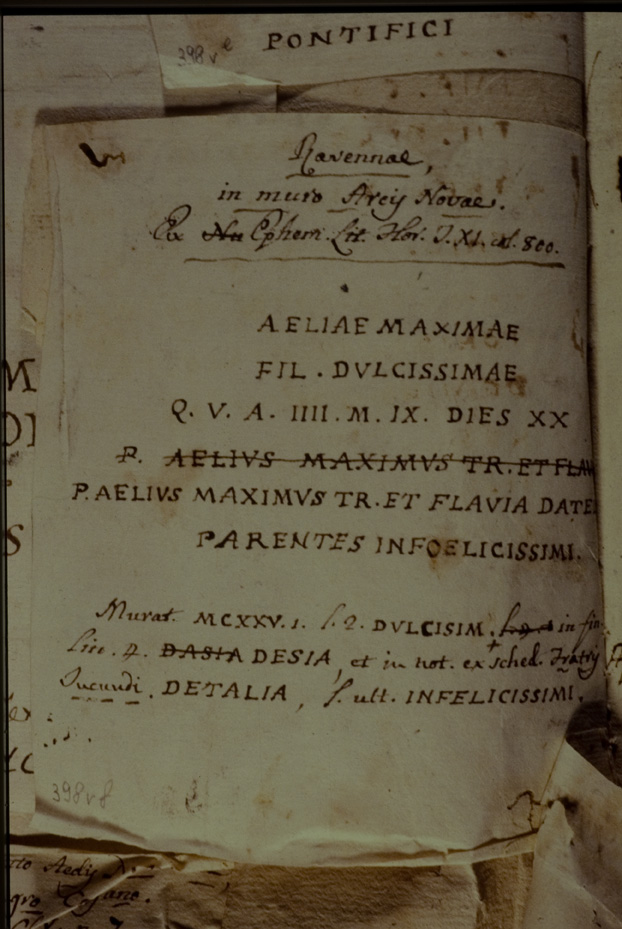 398v e
PONTIFICI
Ravennae,
in muro Arcis Novae.
Ex Nu Ephem. Lit. Flor. T. XI. col. 800.
AELIAE MAXIMAE
FIL. DVLCISSIMAE
Q. V. A. IIII. M. IX. DIES XX
P. AELIVS MAXIMVS TR. ET FLAV
P. AELIVS MAXIMVS TR. ET FLAVIA DATE
PARENTES INFOELICISSIMI.
Murat. MCXXV. 1. l. 2. DVLCISIM. in fin
Lin. 4. DASIA DESIA, et in not. ex sched. Fratris
Jucundi. DETALIA, l. ult. INFELICISSIMI.
398v f
M
S
Aedis